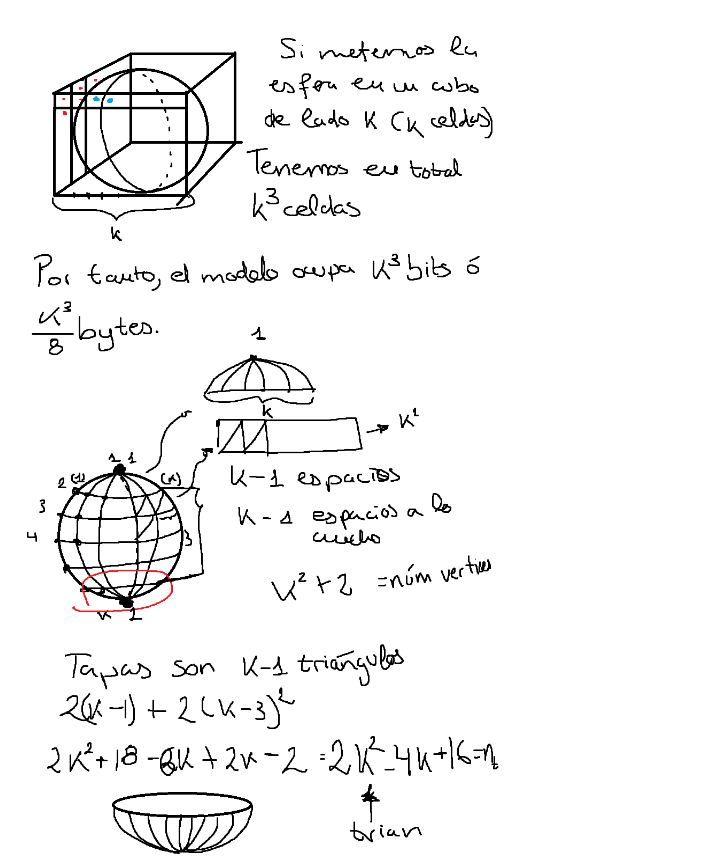 Si metemos la
esfera en un cubo
de lado K (K celdas)
Tenemos en total
K³ celdas
k
Por tanto, el modelo ocupa K³ bits ó
K³/8 bytes.
1
k
K²
1 1
2 (1)
(K)
K-1 espacios
3
K-1 espacios a lo
ancho
4
3
K² + 2 = núm vertices
K
2
Tapas son K-1 triángulos
2(K-1) + 2(K-3)²
2K² + 18 - 6K + 2K - 2 = 2K² - 4K + 16 = n
trian